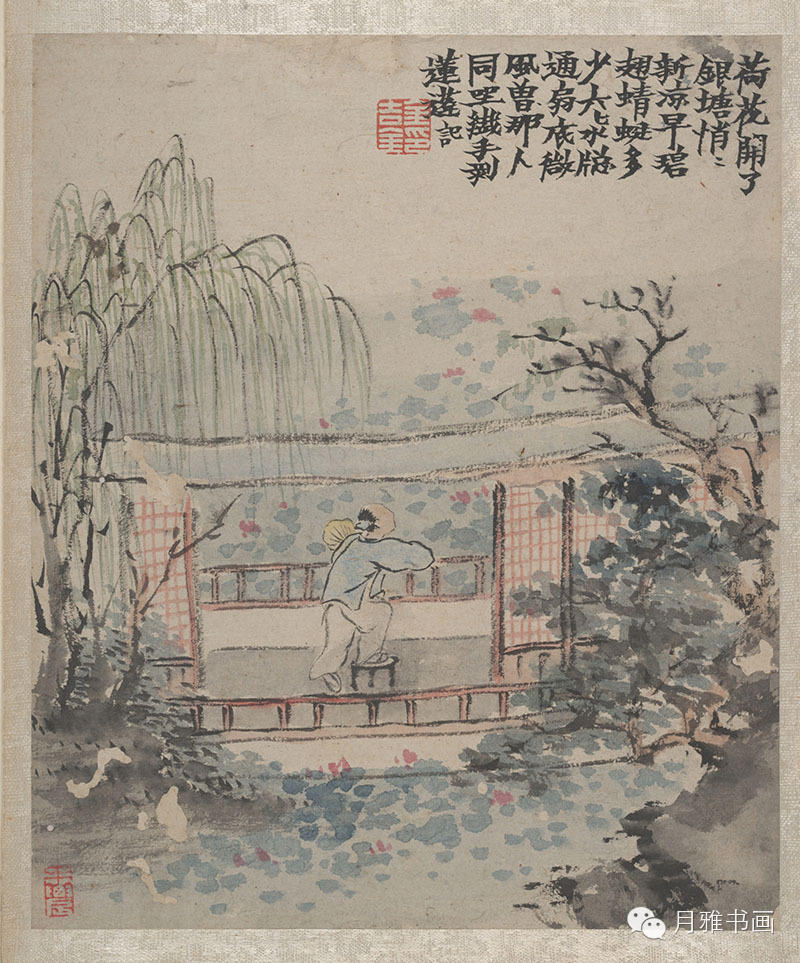 荷花開了
銀塘悄〻
新凉早碧
翅蜻蜓多
少六〻水牕
通扇底微
風曾那人
同坐纖手剥
蓮蓬 記
金吉金印
月雅书画